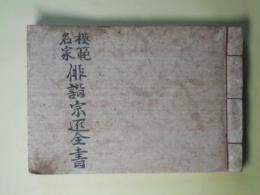 模範
名家
俳諧宗匠全書